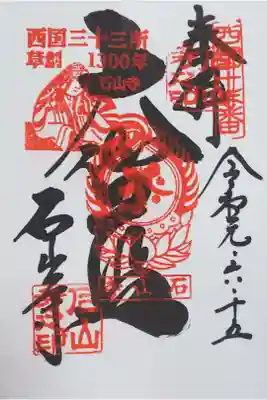 奉拝
令和元・六・十五
西国十三番
大伽藍
西国三十三所
草創 1300年
石山寺
石山寺